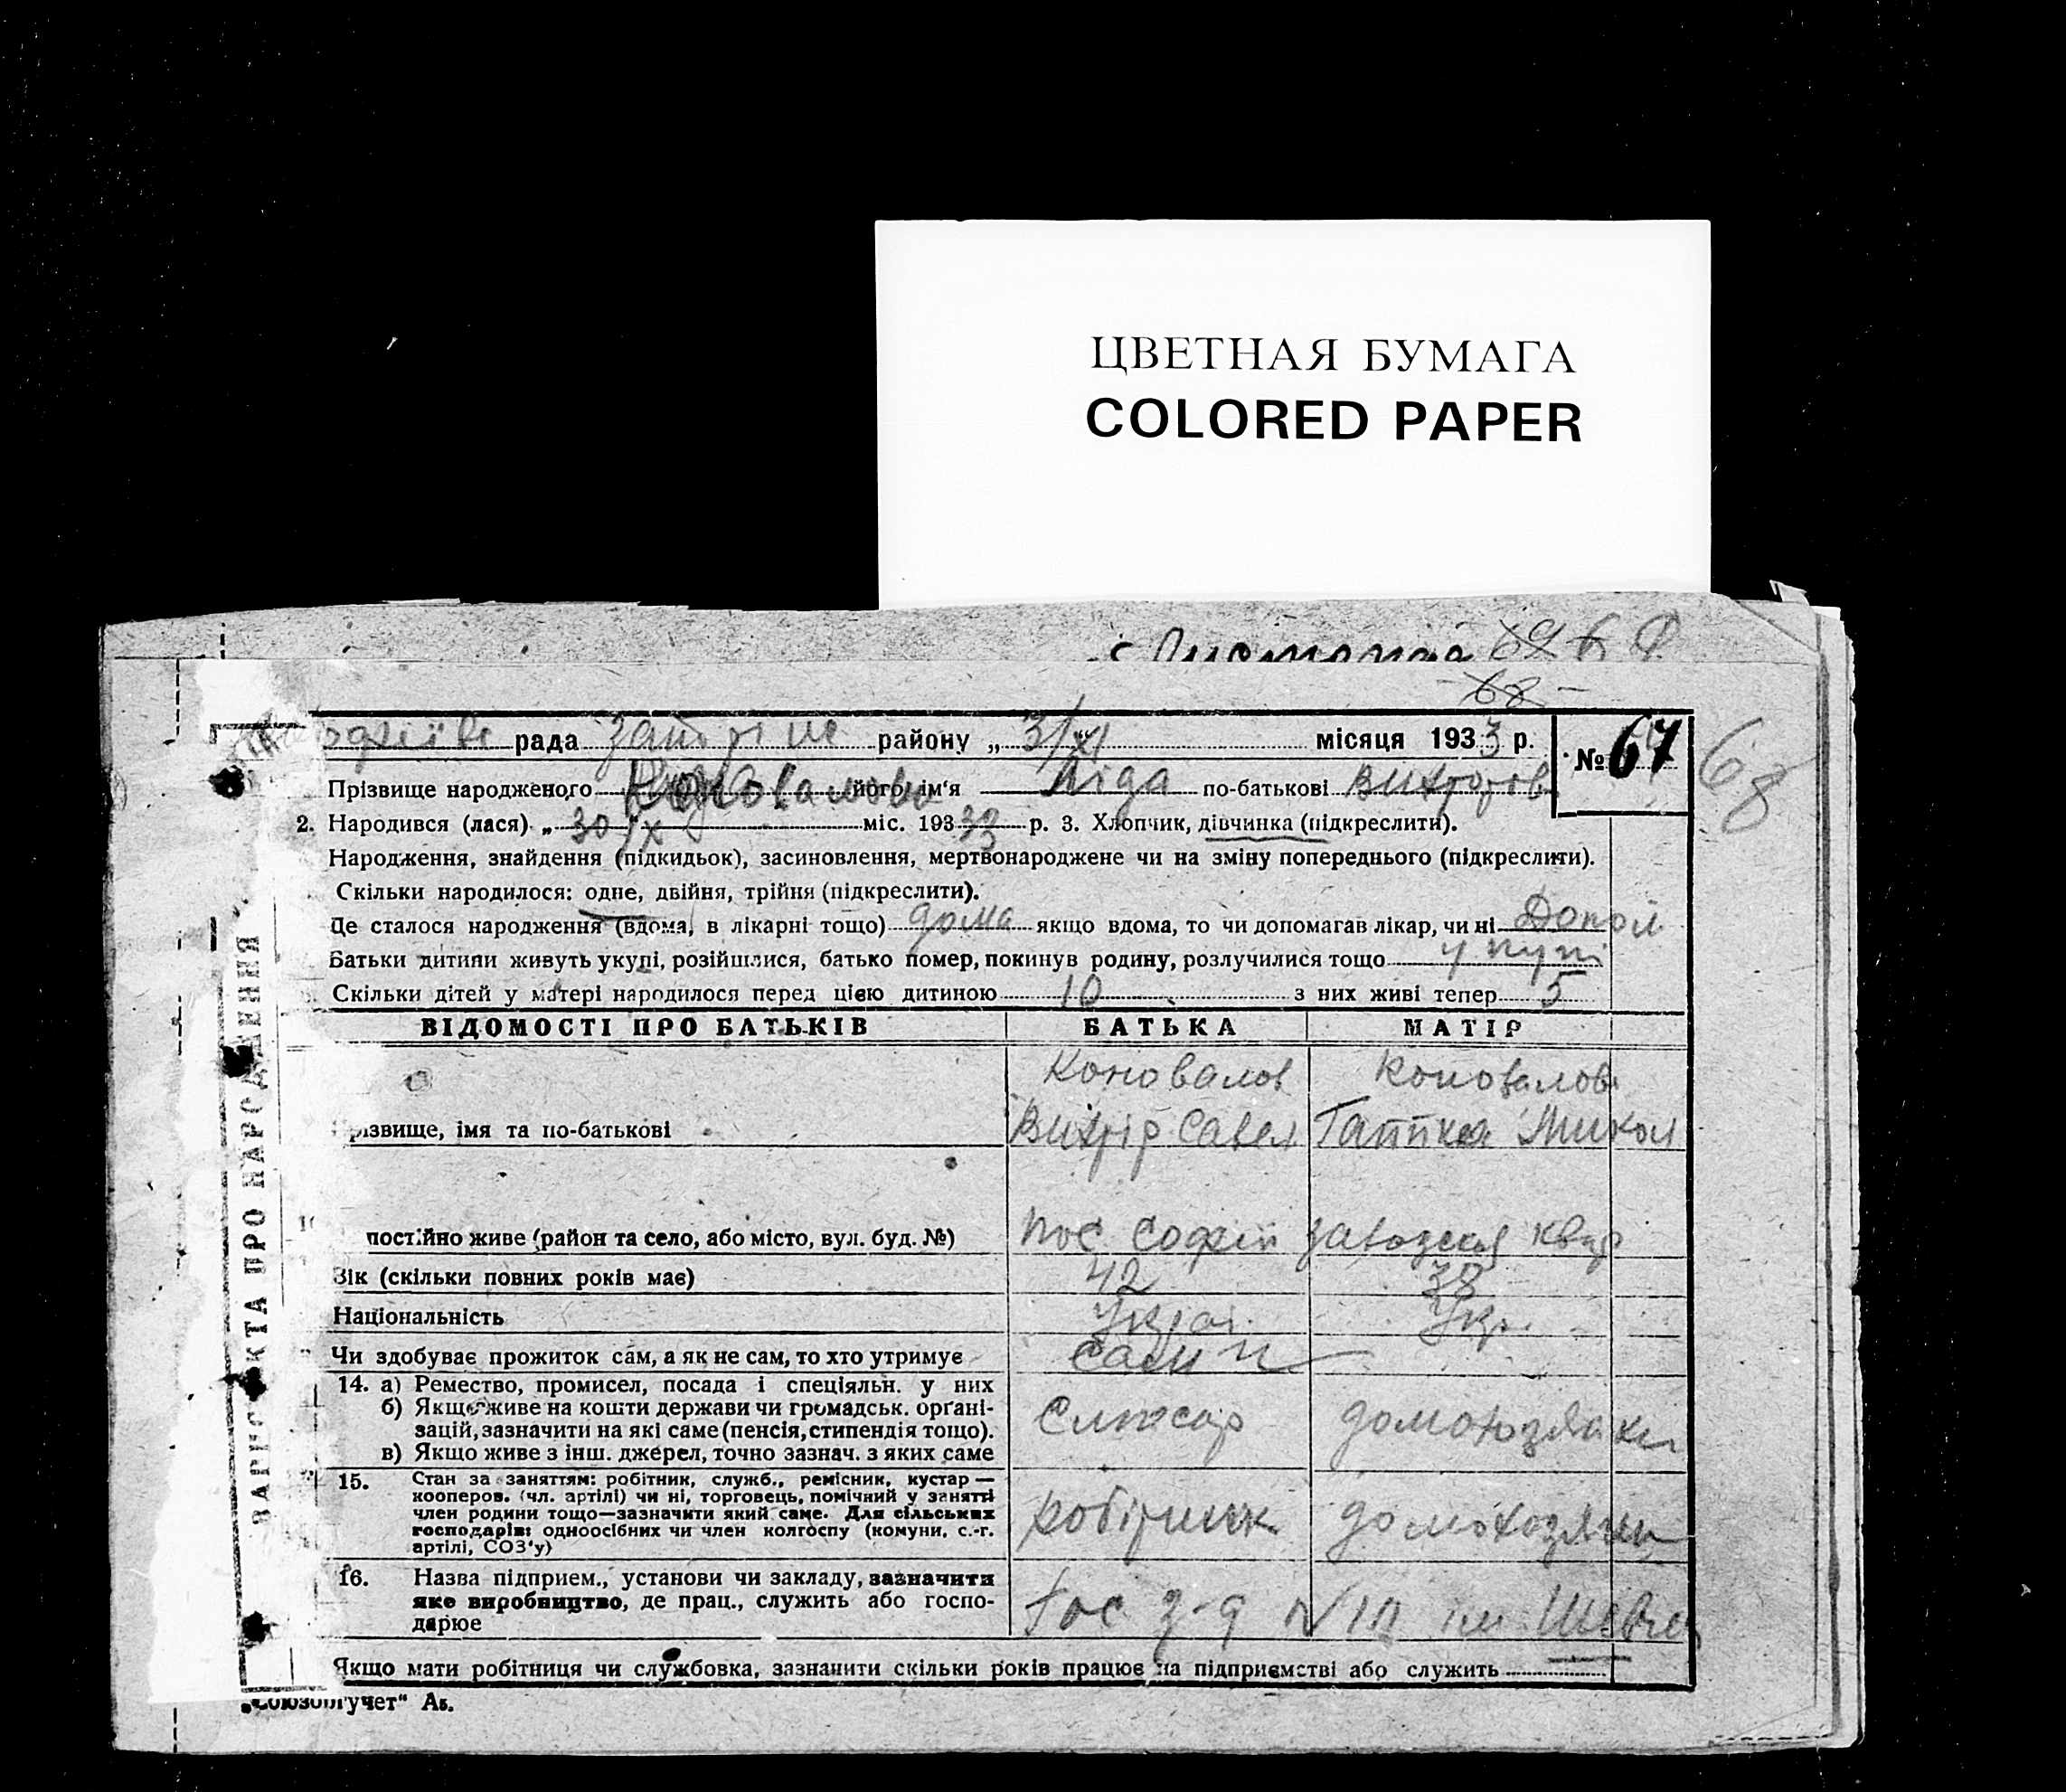 ЦВЕТНАЯ БУМАГА
COLORED PAPER
68
рада районy „ 3/XI місяця 1933 р. № 67 68
Прізвище народженого Коновалова його ім'я Ліда по-батькові
2. Народився (лася) „ 30 / X міс. 193 р. 3. Хлопчик, дівчинка (підкреслити).
Народження, знайдення (підкидьок), засиновлення, мертвонароджене чи на зміну попереднього (підкреслити).
Скільки народилося: одне, двійня, трійня (підкреслити).
Це сталося народження (вдома, в лікарні тощо) дома якщо вдома, то чи допомагав лікар, чи ні
Батьки дитини живуть укупі, розійшлися, батько помер, покинув родину, розлучилися тощо у купі
Скільки дітей у матері народилося перед цією дитиною 10 з них живі тепер 5
ВІДОМОСТІ ПРО БАТЬКІВ БАТЬКА МАТІР
Коновалов Коновалов
різвище, імя та по-батькові Савел Микол
постійно живе (район та село, або місто, вул. буд. №) пос Софіи заводская
Вік (скільки повних років має) 42 38
Національність Украі. Укр.
Чи здобуває прожиток сам, а як не сам, то хто утримує сам
14. а) Ремество, промисел, посада і спеціяльн. у них
б) Якщо живе на кошти держави чи громадськ. орґані-
зацій, зазначити на які саме (пенсія, стипендія тощо).
в) Якщо живе з інш. джерел, точно зазнач. з яких саме
слюсар
15. Стан за заняттям: робітник, служб., ремісник, кустар —
кооперов. (чл. артілі) чи ні, торговець, помічний у занятті
член родини тощо—зазначити який саме. Для сільських
господарів: одноосібних чи член колгоспу (комуни, с.-г.
артілі, СОЗ'у)
робітник
16. Назва підприєм., установи чи закладу, зазначити
яке виробництво, де прац., служить або госпо-
дарює
Гос з-д
Якщо мати робітниця чи службовка, зазначити скільки років працює на підприємстві або служить
„Союзоргучет“